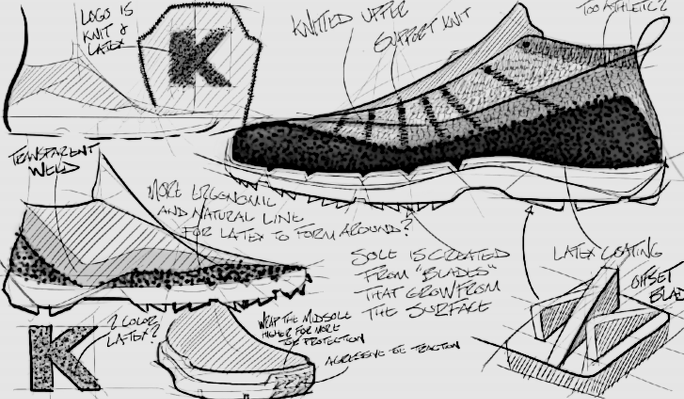 LOGO IS
KNIT &
LATEX
K
KNITTED UPPER
SUPPORT KNIT
TOO ATHLETIC?
TRANSPARENT
WELD
MORE ERGONOMIC
AND NATURAL LINE
FOR LATEX TO FORM AROUND?
SOLE IS CREATED
FROM "BLADES"
THAT GROW FROM
THE SURFACE
LATEX COATING
OFFSET
BLAD
K
2 COLOR
LATEX?
WRAP THE MIDSOLE
HIGHER FOR MORE
TOE PROTECTION
AGRESSIVE TOE TRACTION